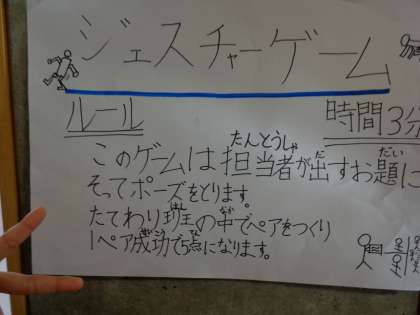 ジェスチャーゲーム
ルール 時間3分
このゲームは担当者が出すお題に
そってポーズをとります。
たてわり班の中でペアをつくり
1ペア成功で5点になります。